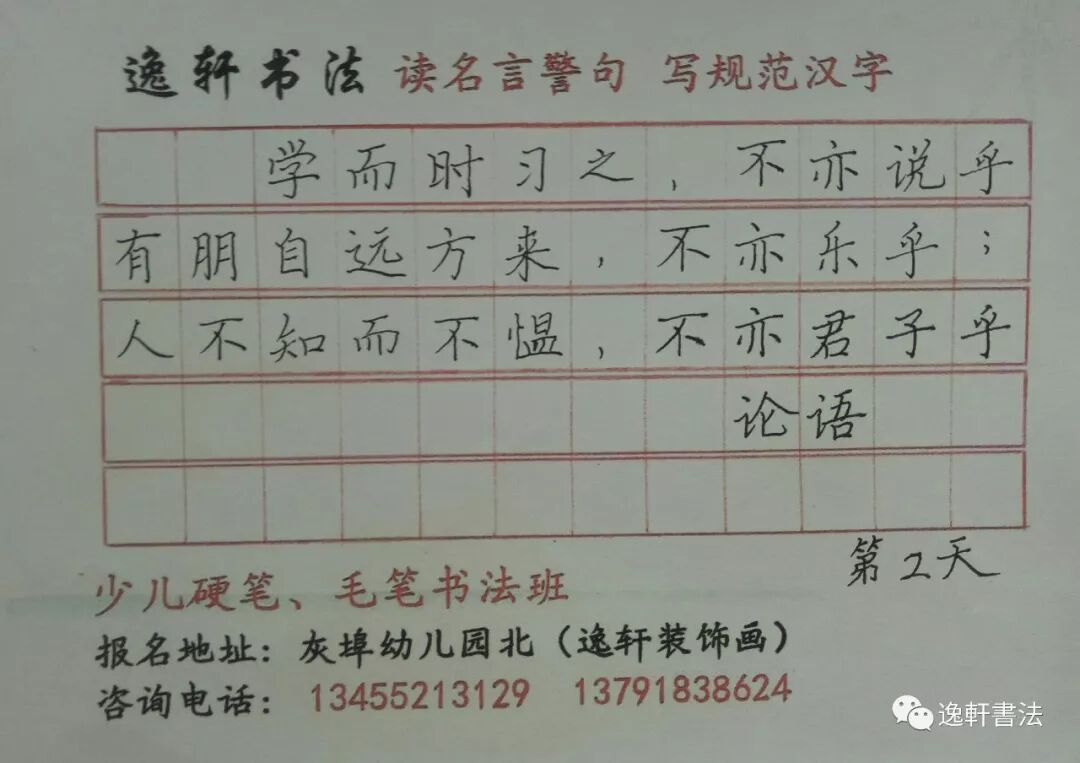 逸轩书法 读名言警句 写规范汉字
学而时习之，不亦说乎
有朋自远方来，不亦乐乎；
人不知而不愠，不亦君子乎
论语
第2天
少儿硬笔、毛笔书法班
报名地址：灰埠幼儿园北（逸轩装饰画）
咨询电话：13455213129 13791838624
逸軒書法